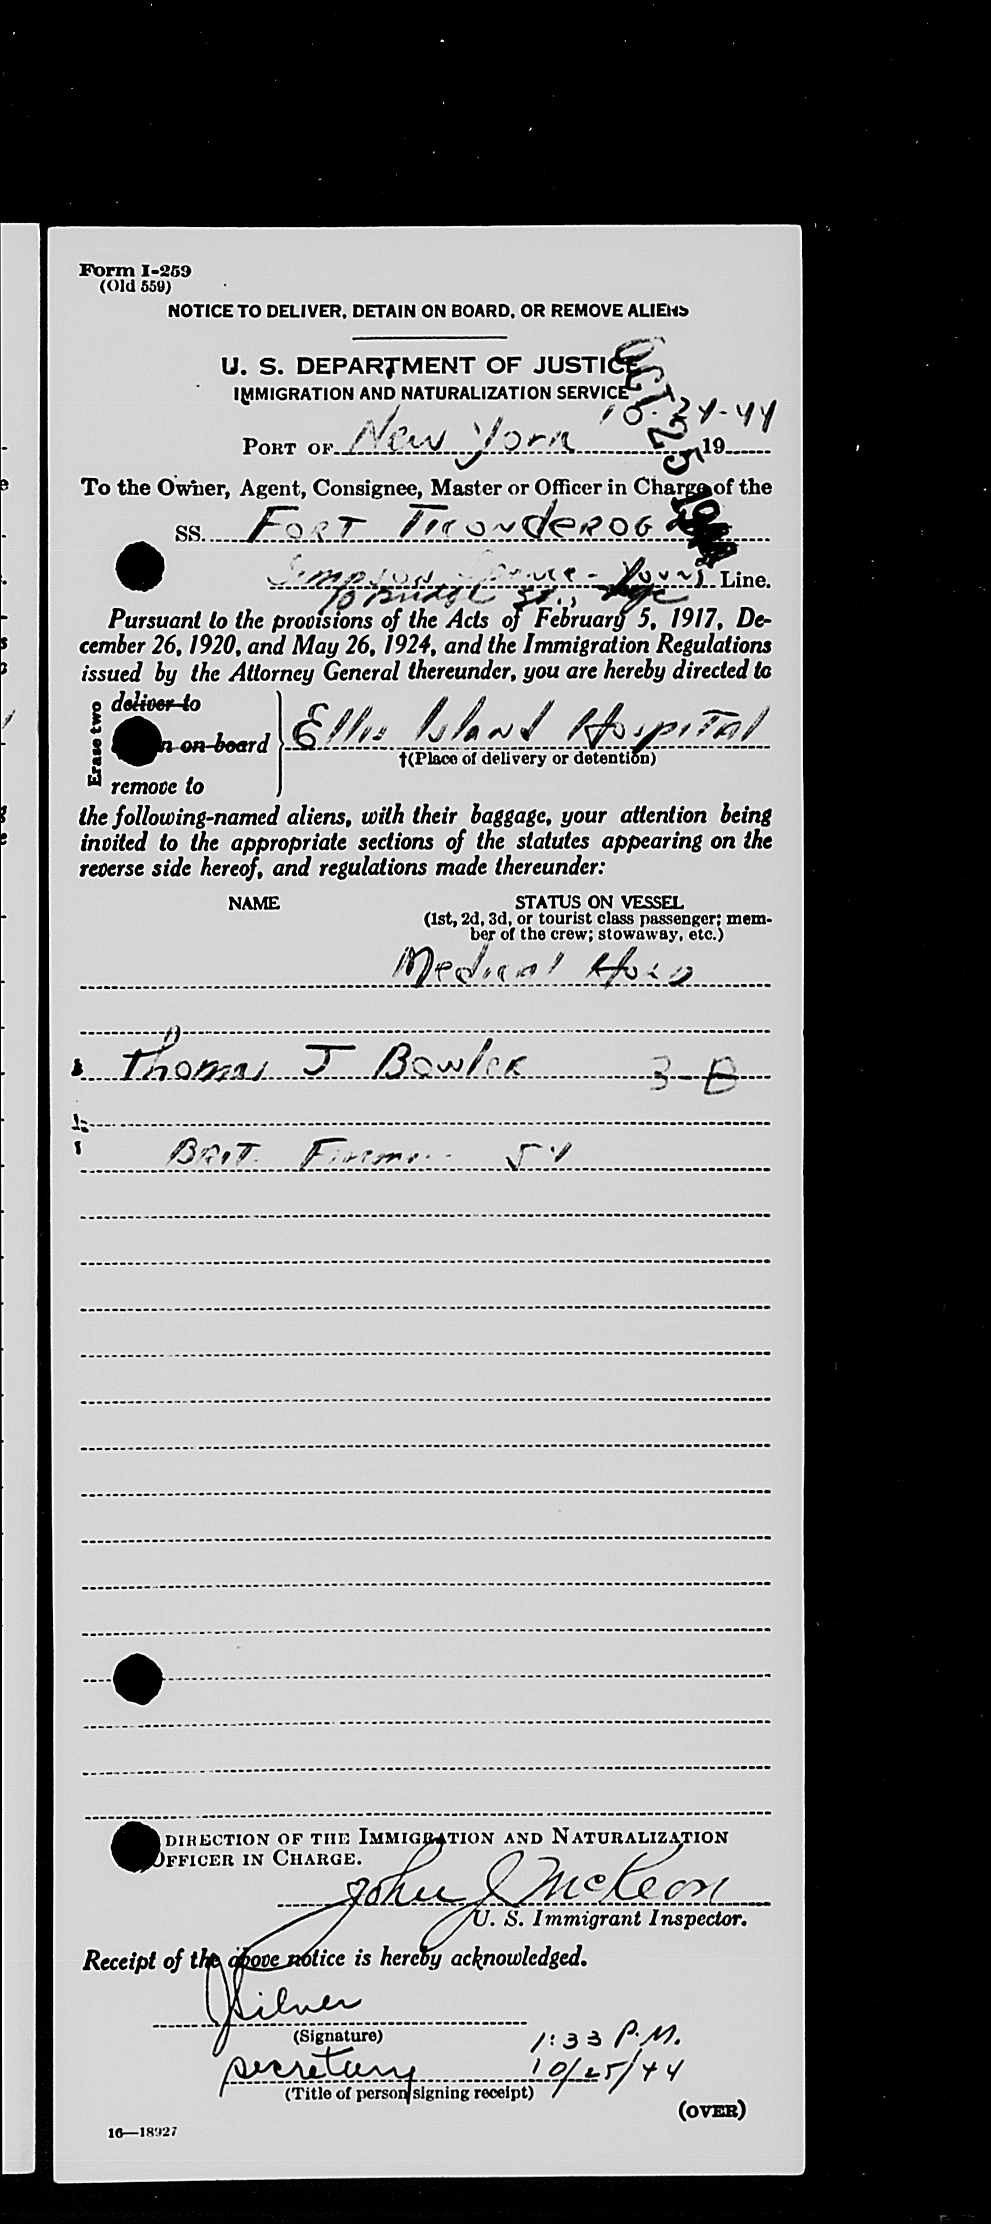 Form I-259
(Old 559)
NOTICE TO DELIVER, DETAIN ON BOARD, OR REMOVE ALIENS
U. S. DEPARTMENT OF JUSTICE
IMMIGRATION AND NATURALIZATION SERVICE
OCT 25 1944
10-24-44
PORT OF New York 19
To the Owner, Agent, Consignee, Master or Officer in Charge of the
SS. FORT TICONDEROG
Simpson Spence - Young Line.
10 Bridge St.,
Pursuant to the provisions of the Acts of February 5, 1917, De-
cember 26, 1920, and May 26, 1924, and the Immigration Regulations
issued by the Attorney General thereunder, you are hereby directed to
Erase two
deliver to
on board
remove to
Ellis Island Hospital
†(Place of delivery or detention)
the following-named aliens, with their baggage, your attention being
invited to the appropriate sections of the statutes appearing on the
reverse side hereof, and regulations made thereunder:
NAME
STATUS ON VESSEL
(1st, 2d, 3d, or tourist class passenger; mem-
ber of the crew; stowaway, etc.)
Medical Hold
Thomas J Bowler 3-B
BRIT. Fireman 54
DIRECTION OF THE IMMIGRATION AND NATURALIZATION
OFFICER IN CHARGE.
John J McKeon
U. S. Immigrant Inspector.
Receipt of the above notice is hereby acknowledged.
J Silver
(Signature)
1:33 P.M.
secretary 10/25/44
(Title of person signing receipt)
(OVER)
16—18927